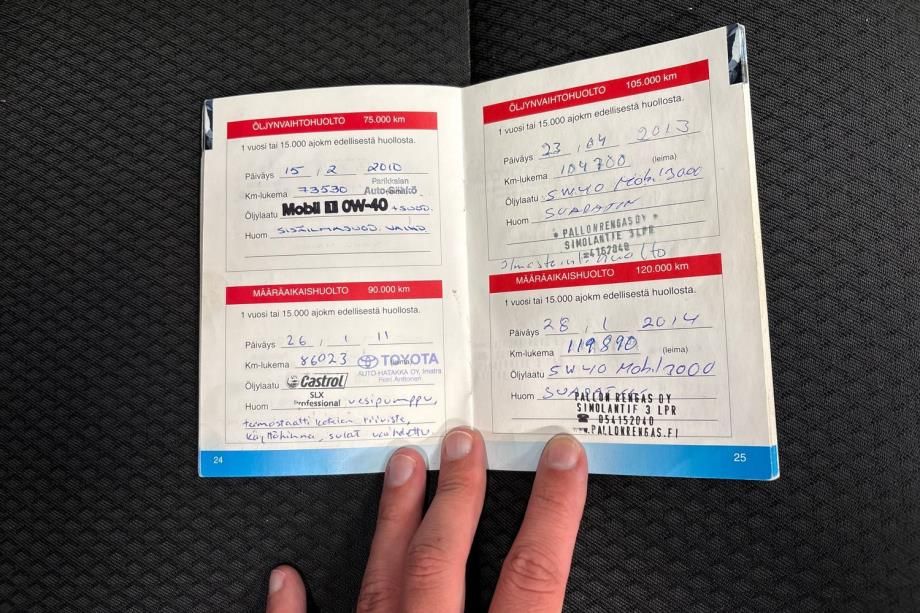 ÖLJYNVAIHTOHUOLTO 75.000 km
1 vuosi tai 15.000 ajokm edellisestä huollosta.
Päiväys 15 . 2 2010
Parikkalan
Km-lukema 73530 Auto-Sähkö
Öljylaatu Mobil 1 0W-40 + SUOD.
Huom SISÄILMASUOD. VAIHD
MÄÄRÄAIKAISHUOLTO 90.000 km
1 vuosi tai 15.000 ajokm edellisestä huollosta.
Päiväys 26 . 1 . 11
Km-lukema 86023 TOYOTA
AUTO-HATAKKA OY, Imatra
Öljylaatu Castrol Anttonen
SLX
Huom Professional vesipumppu,
termostaatti
käyttöhihna, sulat vaihdettu
24
ÖLJYNVAIHTOHUOLTO 105.000 km
1 vuosi tai 15.000 ajokm edellisestä huollosta.
Päiväys 23 . 04 2013
Km-lukema 104700 (leima)
Öljylaatu 5W40 Mobil 3000
Huom SUODATIN
PALLONRENGAS OY
SIMOLANTIE 3 LPR
4152040
Ilmastointi huolto
MÄÄRÄAIKAISHUOLTO 120.000 km
1 vuosi tai 15.000 ajokm edellisestä huollosta.
Päiväys 28 . 1 2014
Km-lukema 119890 (leima)
Öljylaatu 5W40 Mobil 3000
Huom
PALLON RENGAS OY
SIMOLANTIE 3 LPR
☎ 054152040
www.PALLONRENGAS.FI
25